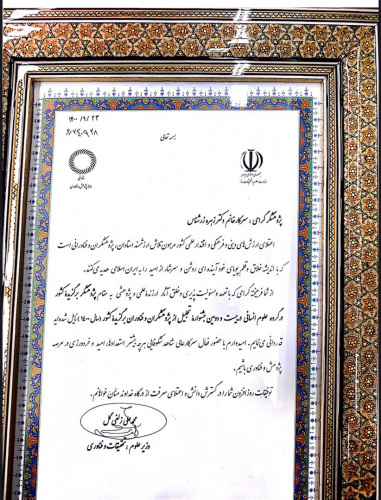 ۱۴۰۰/۹/۲۳
بسمه تعالی
پژوهشگر گرامی ، سرکار خانم دکتر زهره زرشناس
اعتلای ارزش‌های دینی و فرهنگی و اقتدار علمی کشور مرهون تلاش ارزشمند استادان، پژوهشگران و فناورانی است
که با اندیشه خلاق و قلم پویای خود آینده ای روشن و سرشار از امید را به ایران اسلامی هدیه می‌کنند.
از شما فرهیخته گرامی که با تعهد و مسئولیت پذیری و خلق آثار ارزنده علمی و پژوهشی به مقام پژوهشگر برگزیده کشور
در گروه علوم انسانی در بیست و دومین جشنواره تجلیل از پژوهشگران و فناوران برگزیده کشور (سال ۱۴۰۰) نایل شده اید
قدردانی می‌نمایم. امیدوارم با حضور فعال سرکارعالی شاهد شکوفایی هرچه بیشتر استعدادها، امید و خردورزی در عرصه
پژوهش و فناوری باشیم.
توفیقات روزافزون شما را در گسترش دانش و اعتلای معرفت از درگاه خداوند منان خواهانم.
محمدعلی زلفی گل
وزیر علوم ، تحقیقات و فناوری